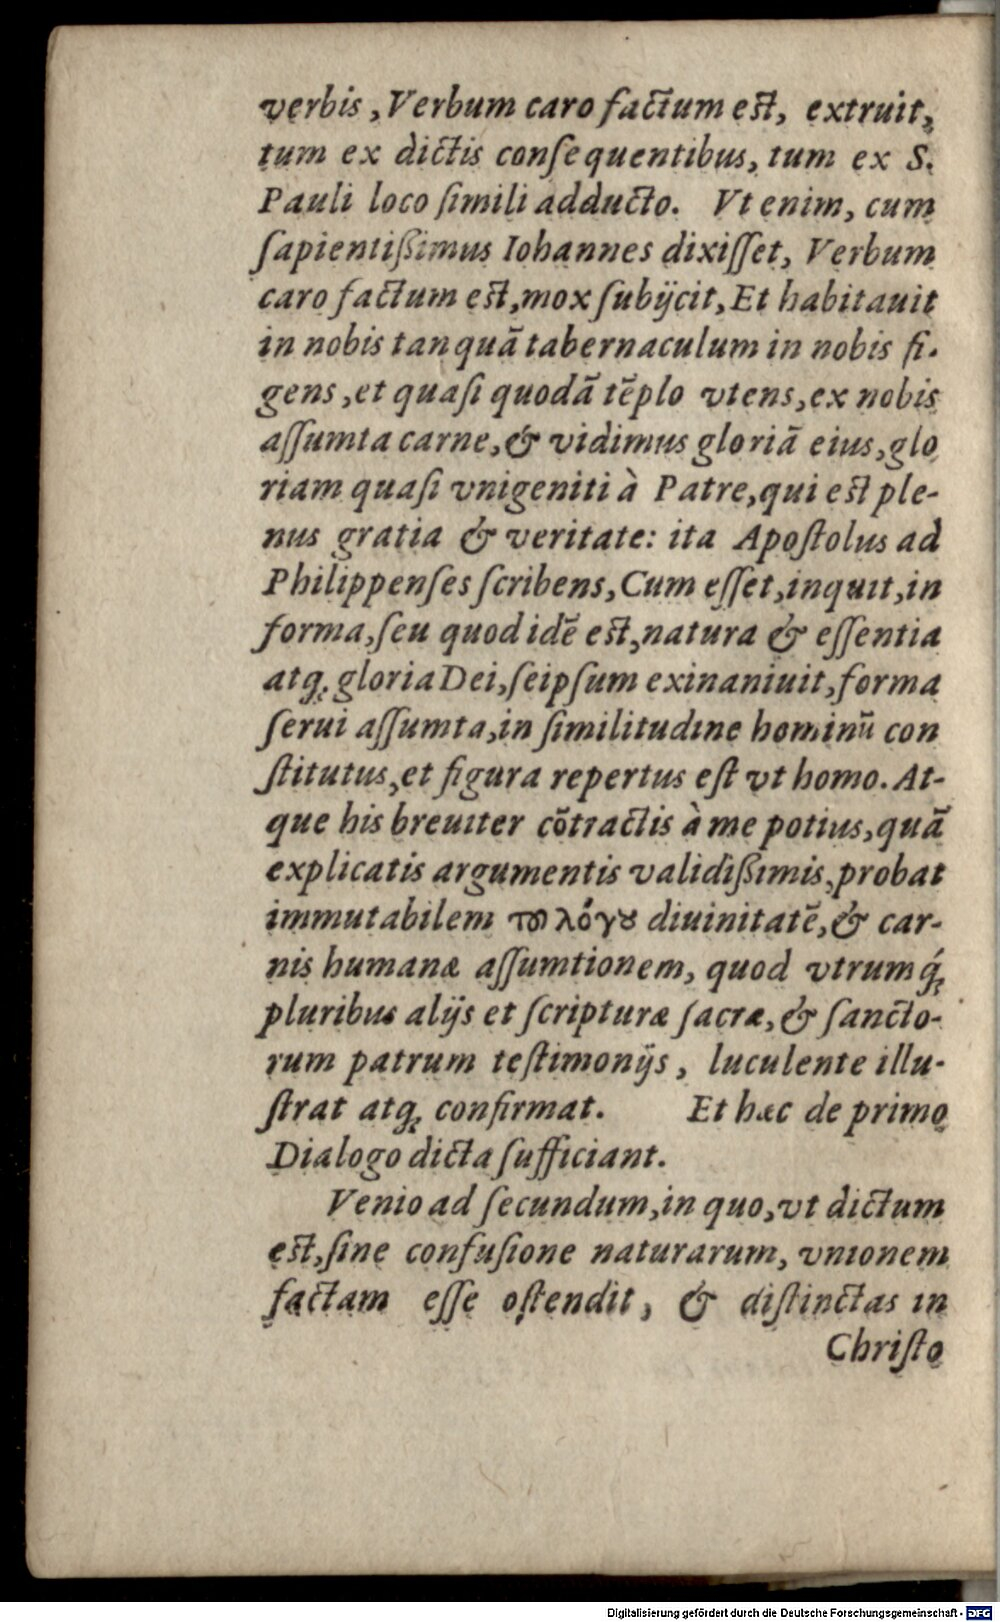 verbis, Verbum caro factum est, extruit,
tum ex dictis conſequentibus, tum ex S.
Pauli loco ſimili adducto. Vt enim, cum
ſapientiſsimus Iohannes dixiſſet, Verbum
caro factum est, mox ſubijcit, Et habitauit
in nobis tanquā tabernaculum in nobis fi-
gens, et quaſi quodā tēplo vtens, ex nobis
aſſumta carne, & vidimus gloriā eius, glo
riam quaſi vnigeniti à Patre, qui est ple-
nus gratia & veritate: ita Apoſtolus ad
Philippenſes ſcribens, Cum eſſet, inquit, in
forma, ſeu quod idē est, natura & eſſentia
atq; gloria Dei, ſeipſum exinaniuit, forma
ſerui aſſumta, in ſimilitudine hominū con
ſtitutus, et figura repertus eſt vt homo. At-
que his breuiter cōtractis à me potius, quā
explicatis argumentis validiſsimis, probat
immutabilem τȣ͂ λόγȣ diuinitatē, & car-
nis humanæ aſſumtionem, quod vtrumq́;
pluribus alijs et ſcripturæ ſacræ, & ſancto-
rum patrum teſtimonijs, luculente illu-
ſtrat atq; confirmat. Et hæc de primo
Dialogo dicta ſufficiant.
Venio ad ſecundum, in quo, vt dictum
est, ſine confuſione naturarum, vnionem
factam eſſe oſtendit, & diſtinctas in
Chriſto
Digitalisierung gefördert durch die Deutsche Forschungsgemeinschaft - DFG